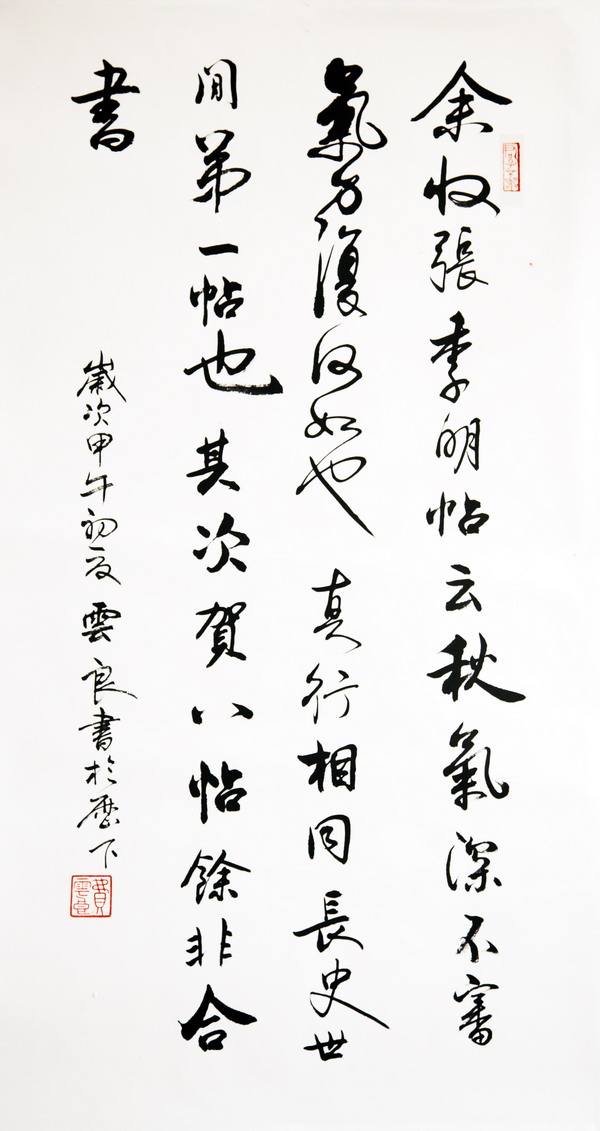 余收張季明帖云秋氣深不審
氣力復何如也真行相同長史世
間第一帖也其次賀八帖餘非合
書
歲次甲午初夏雲良書於歷下